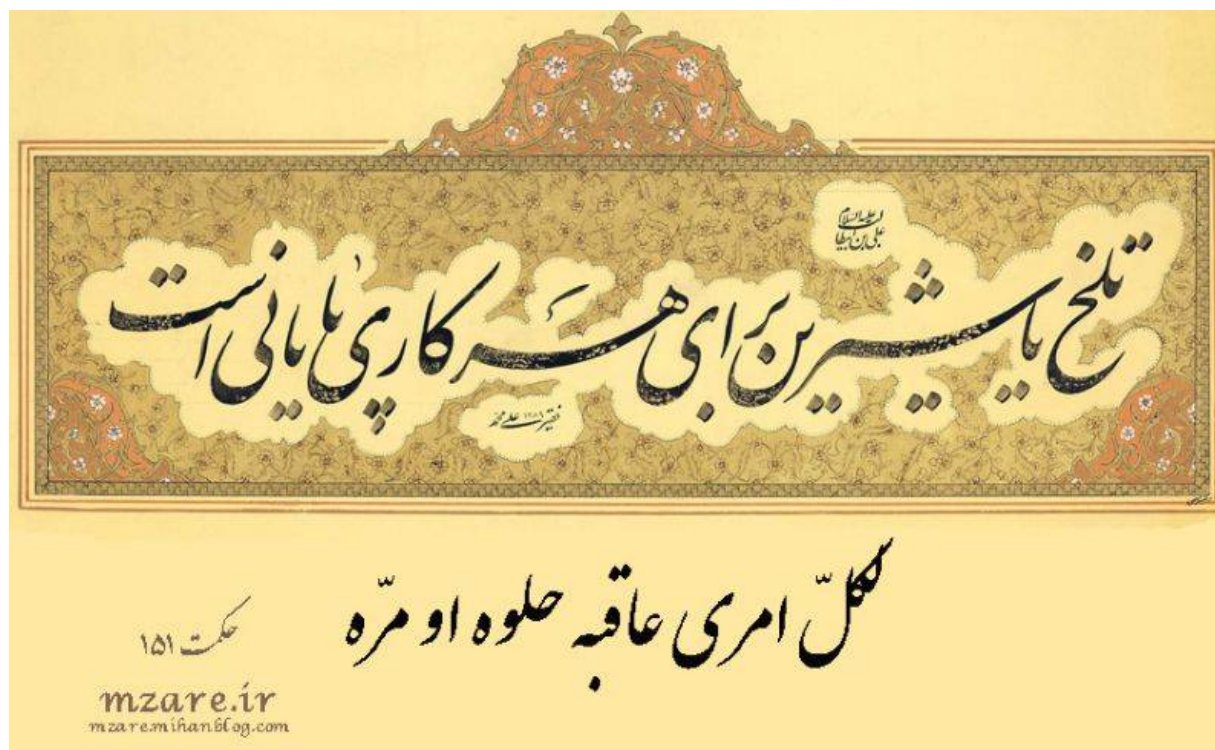 علی بن ابیطالب علیه السلام
تلخ یا شیرین برای هر کاری پایانی است
فقیر علی محمد ۱۳۸۹
لکلّ امری عاقبه حلوه او مرّه
حکمت ۱۵۱
mzare.ir
mzare.mihanblog.com